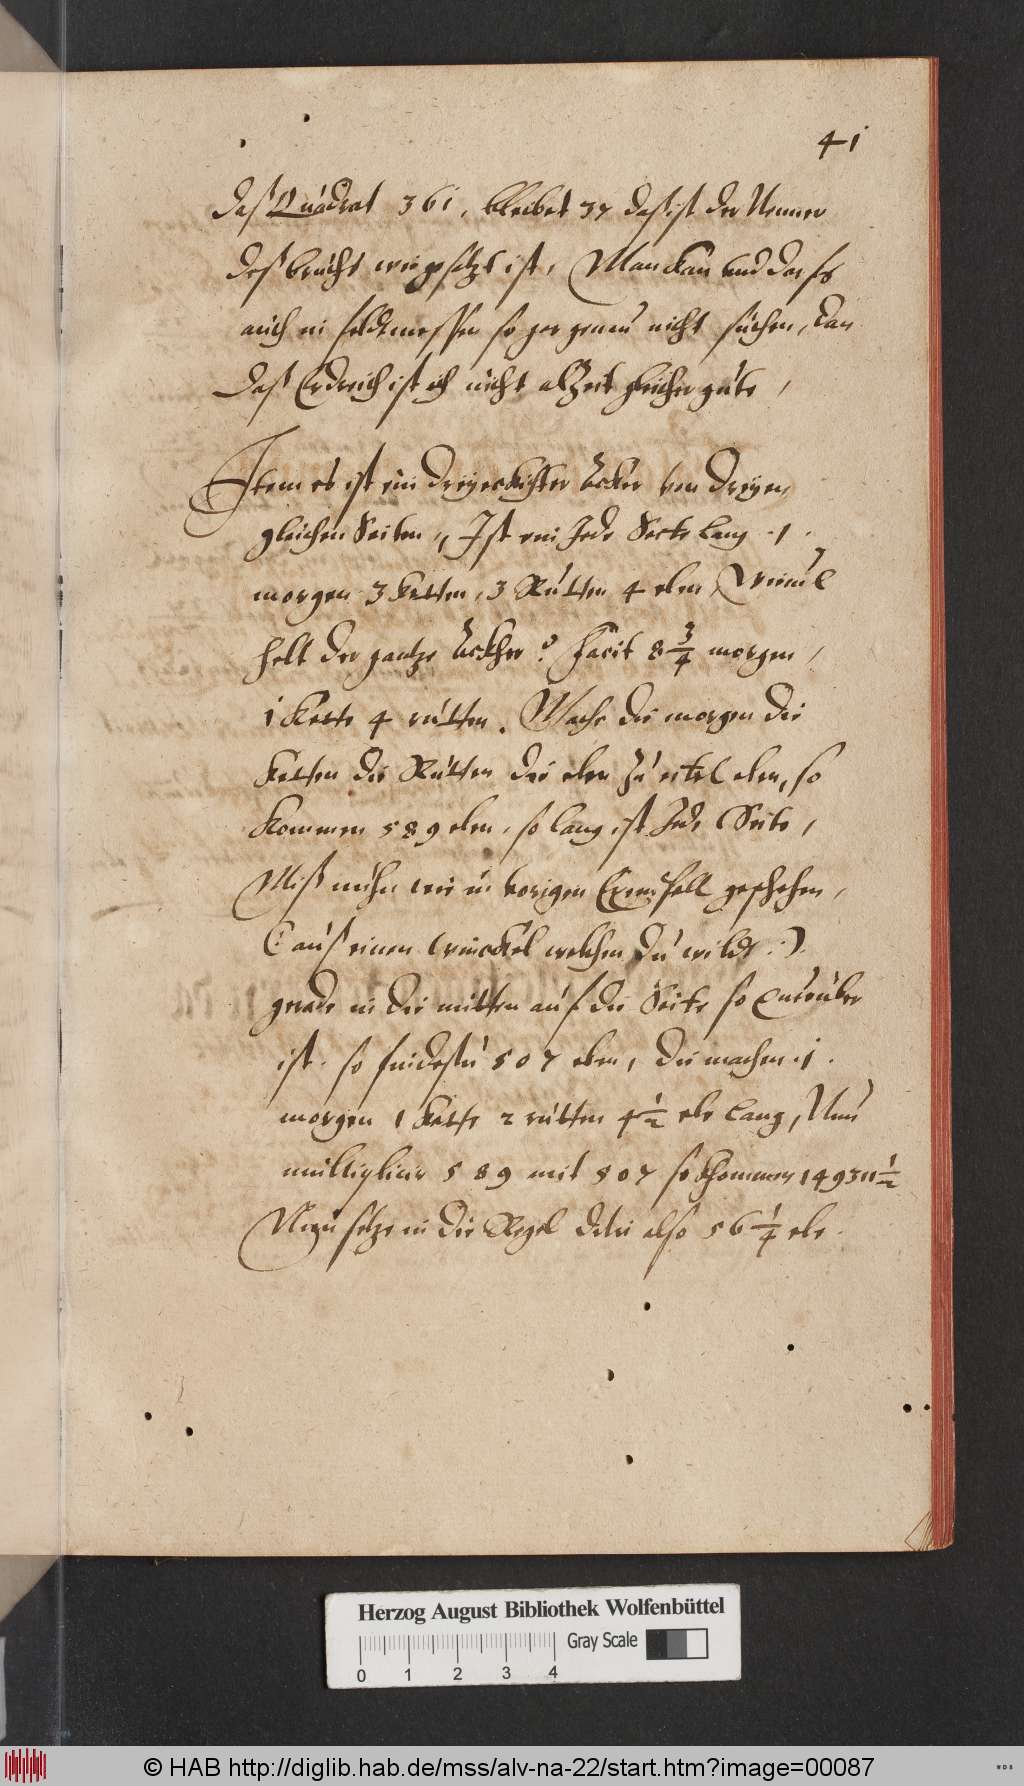 41
daß Quadrat 361, bleibet 37 das ist der Nenner
deß bruchs wie gesetzt ist, Man kan vnd darfs
auch in feldtmessen so gar genau nicht suchen, dan
daß Erdreich ist ich nicht alzeit gleicher güte,
Item es ist ein dreyeckichter Acker von dreyen
gleichen Seiten, Ist ein Jede Seite lang 1
morgen 3 Ketten, 3 Rutten 4 elen, Wieuil
helt der gantze Ackher? Facit 8 3/4 morgen,
1 Kette 4 rutten. Mache die morgen die
Ketten die Rutten die elen zu eitel elen, so
kommen 589 elen, so lang ist Jede Seite,
Miß nuhn wie in vorigen Exempell geschehen,
(: auß einen winckel welchen du wildt :)
gerade in die mitten auf die Seite so
ist. so findestu 507 elen, die machen 1.
morgen 1 Kette 2 rutten 4 1/2 ele lang, Nun
multiplicir 589 mit 507 so khommen 149311 1/2
setze in die Regel detri also 56 1/4 ele.
Herzog August Bibliothek Wolfenbüttel
Gray Scale
0 1 2 3 4
© HAB http://diglib.hab.de/mss/alv-na-22/start.htm?image=00087